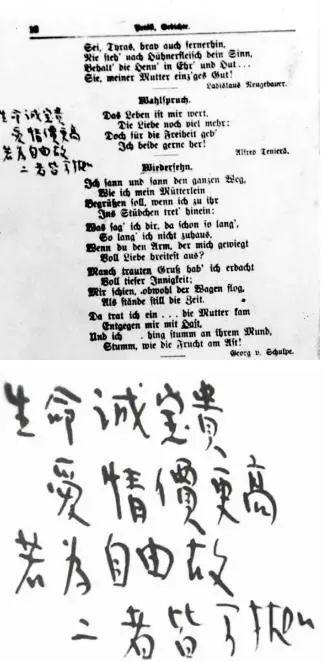 10
Petöfi, Gedichte.
Sei, Tyras, brav auch fernerhin,
Nie steh' nach Hühnerfleisch dein Sinn,
Behalt' die Henn' in Ehr' und Hut...
Sie, meiner Mutter einz'ges Gut!
Ladislaus Neugebauer.
Wahlspruch.
Das Leben ist mir wert,
Die Liebe noch viel mehr:
Doch für die Freiheit geb'
Ich beide gerne her!
Alfred Teniers.
生命誠宝貴
愛情價更高
若为自由故
二者皆可抛
Wiedersehn.
Ich sann und sann den ganzen Weg,
Wie ich mein Mütterlein
Begrüßen soll, wenn ich zu ihr
Ins Stübchen tret' hinein:
Was sag' ich dir, da schon so lang',
So lang' ich nicht zuhaus,
Wenn du den Arm, der mich gewiegt
Voll Liebe breitest aus?
Manch trauten Gruß hab' ich erdacht
Voll tiefer Innigkeit;
Mir schien, obwohl der Wagen flog,
Als stände still die Zeit.
Da trat ich ein ... die Mutter kam
Entgegen mir mit Hast,
Und ich . . hing stumm an ihrem Mund,
Stumm, wie die Frucht am Ast!
Georg v. Schulpe.
生命誠宝貴
愛情價更高
若为自由故
二者皆可抛